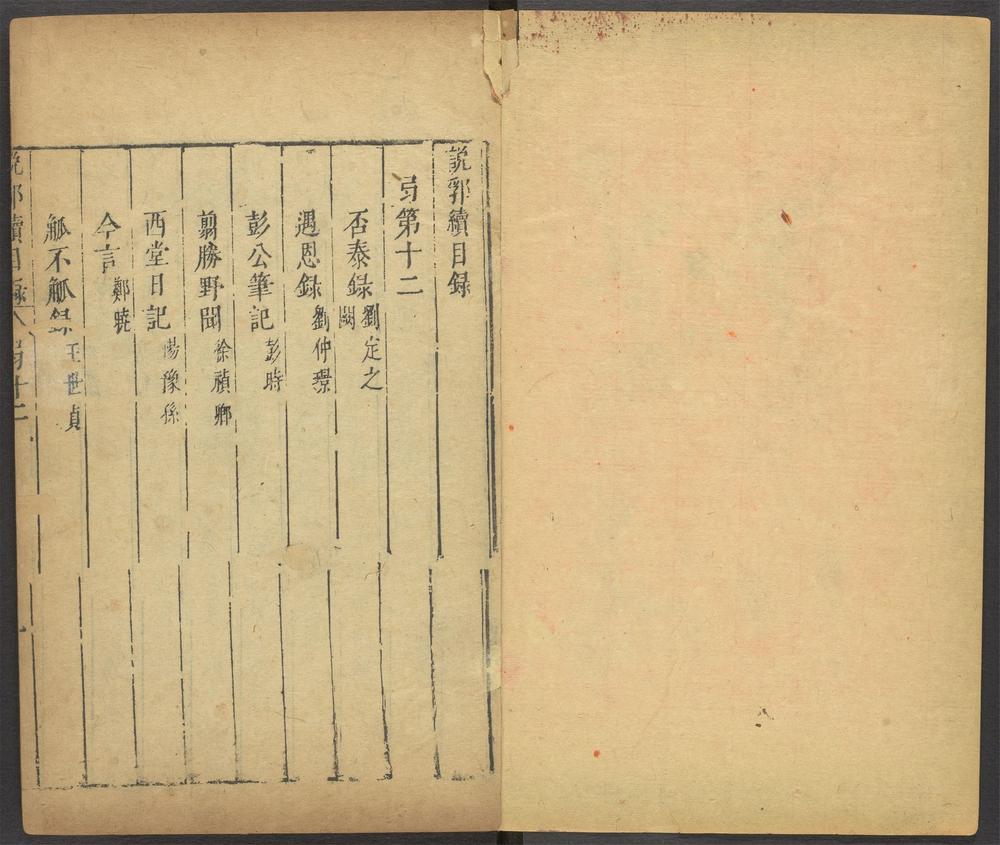 説郛續目録
弓第十二
否泰録 劉定之 闕
遇恩録 劉仲璟
彭公筆記 彭時
翦勝野聞 徐禎卿
西堂日記 楊豫孫
今言 鄭曉
觚不觚録 王世貞
説郛續目録 弓十二